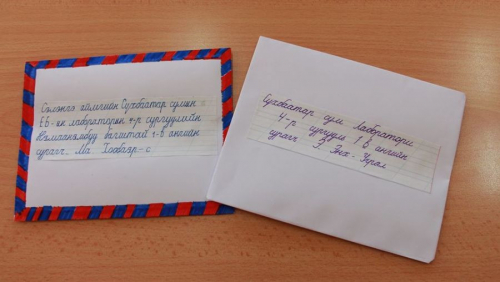 Сэлэнгэ аймгийн Сүхбаатар сумын
ЕБ-ын лаборатори 4-р сургуулийн
багштай 1-в ангийн
сурагч Ма
Сүхбаатар сум Лаборатори
4-р сургууль 1 в ангийн
сурагч Э. Энх-